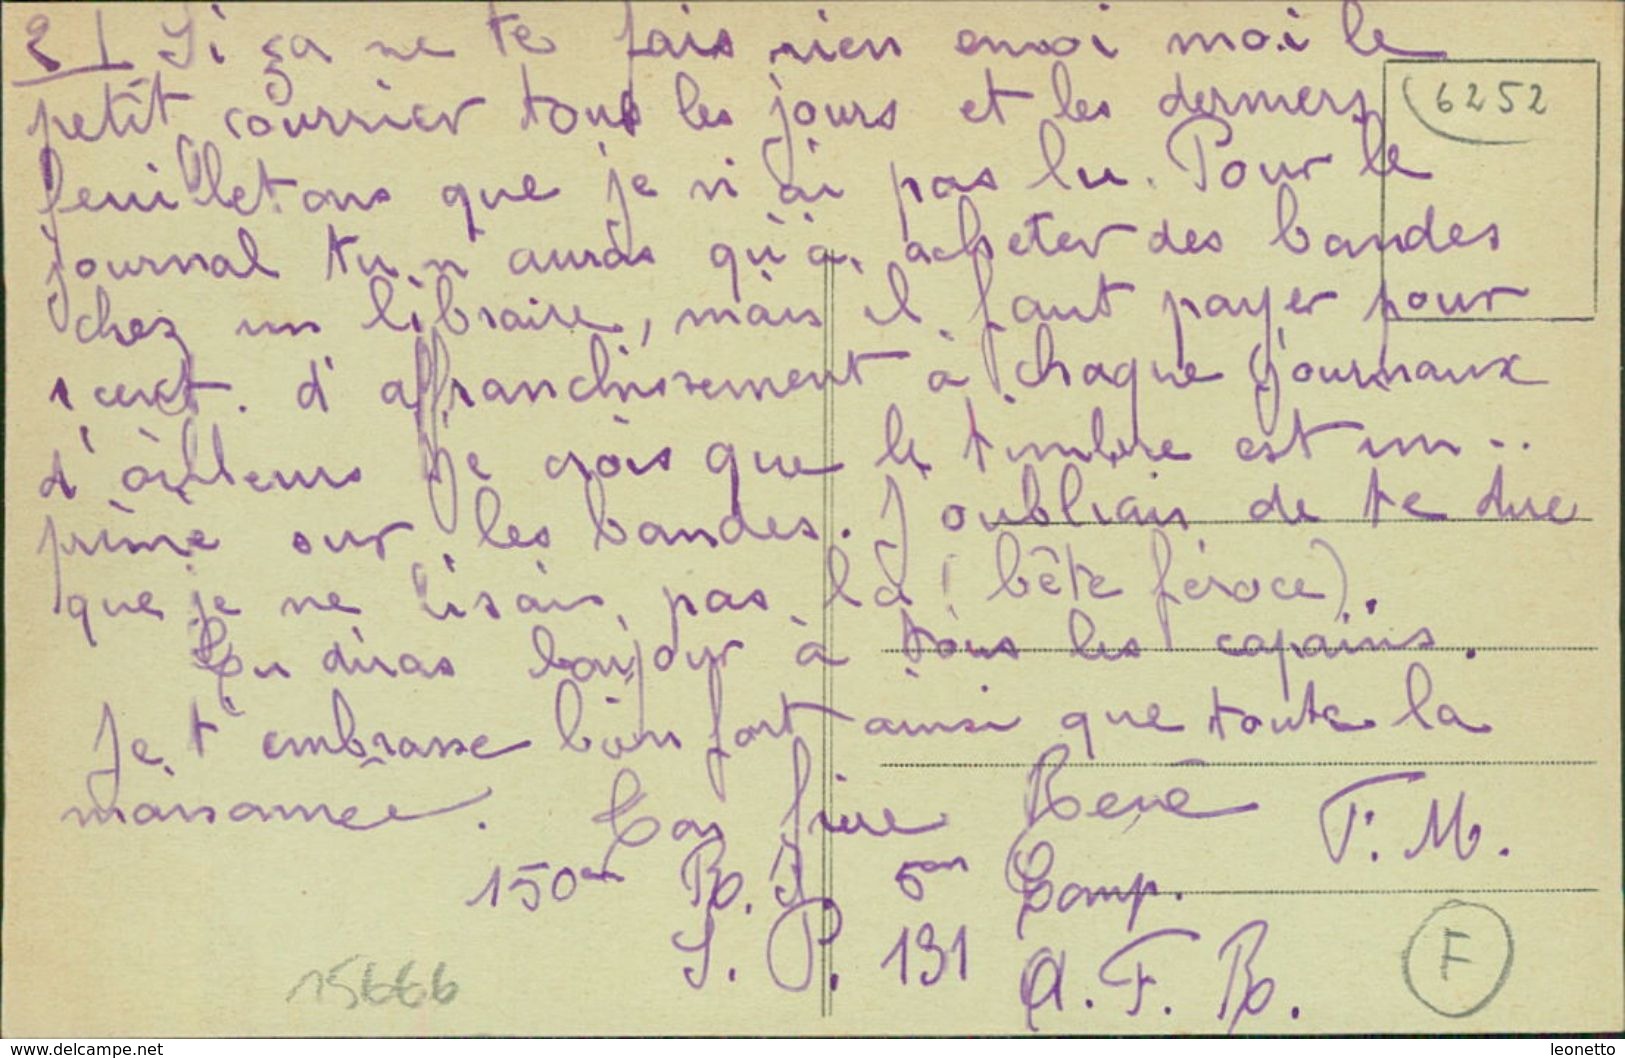 2) Si ça ne te fais rien envoi moi le
petit courrier tous les jours et les derniers
6252
feuilletons que je n'ai pas lu. Pour le
journal tu n'auras qu'à acheter des bandes
chez un libraire, mais il faut payer pour
1 cent. d'affranchissement à chaque journaux
d'ailleurs je crois que le timbre est im..
primé sur les bandes. J'oubliais de te dire
que je ne lisais pas là (bête féroce).
Tu diras bonjour à tous les copains.
Je t'embrasse bien fort ainsi que toute la
maisonnée. Ton frère René F. M.
150em R. I. 5em Comp.
S. P. 131 A. F. R.
F
15666
www.delcampe.net
leonetto